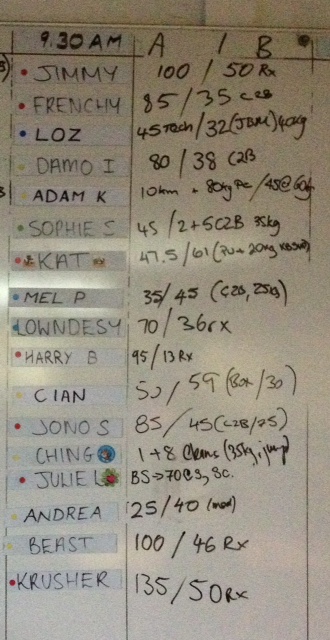 9.30AM A / B
JIMMY 100 / 50 Rx
FRENCHY 85 / 35 C2B
LOZ 45 Tech / 32 (JBM) 40kg
DAMO I 80 / 38 C2B
ADAM K 10km + 80kg PC / 45@60kg
SOPHIE S 45 / 2+5C2B 35kg
KAT 47.5 / 61 (PU + 20kg
MEL P 35 / 45 (C2B, 25kg)
LOWNDESY 70 / 36rx
HARRY B 95 / 13 Rx
CIAN 50 / 59 (Box / 30)
JONO S 85 / 45 (C2B/75)
CHING 1+8 Cleans (35kg, jump)
JULIE L BS → 70
ANDREA 25 / 40 (mod)
BEAST 100 / 46 Rx
KRUSHER 135 / 50 Rx